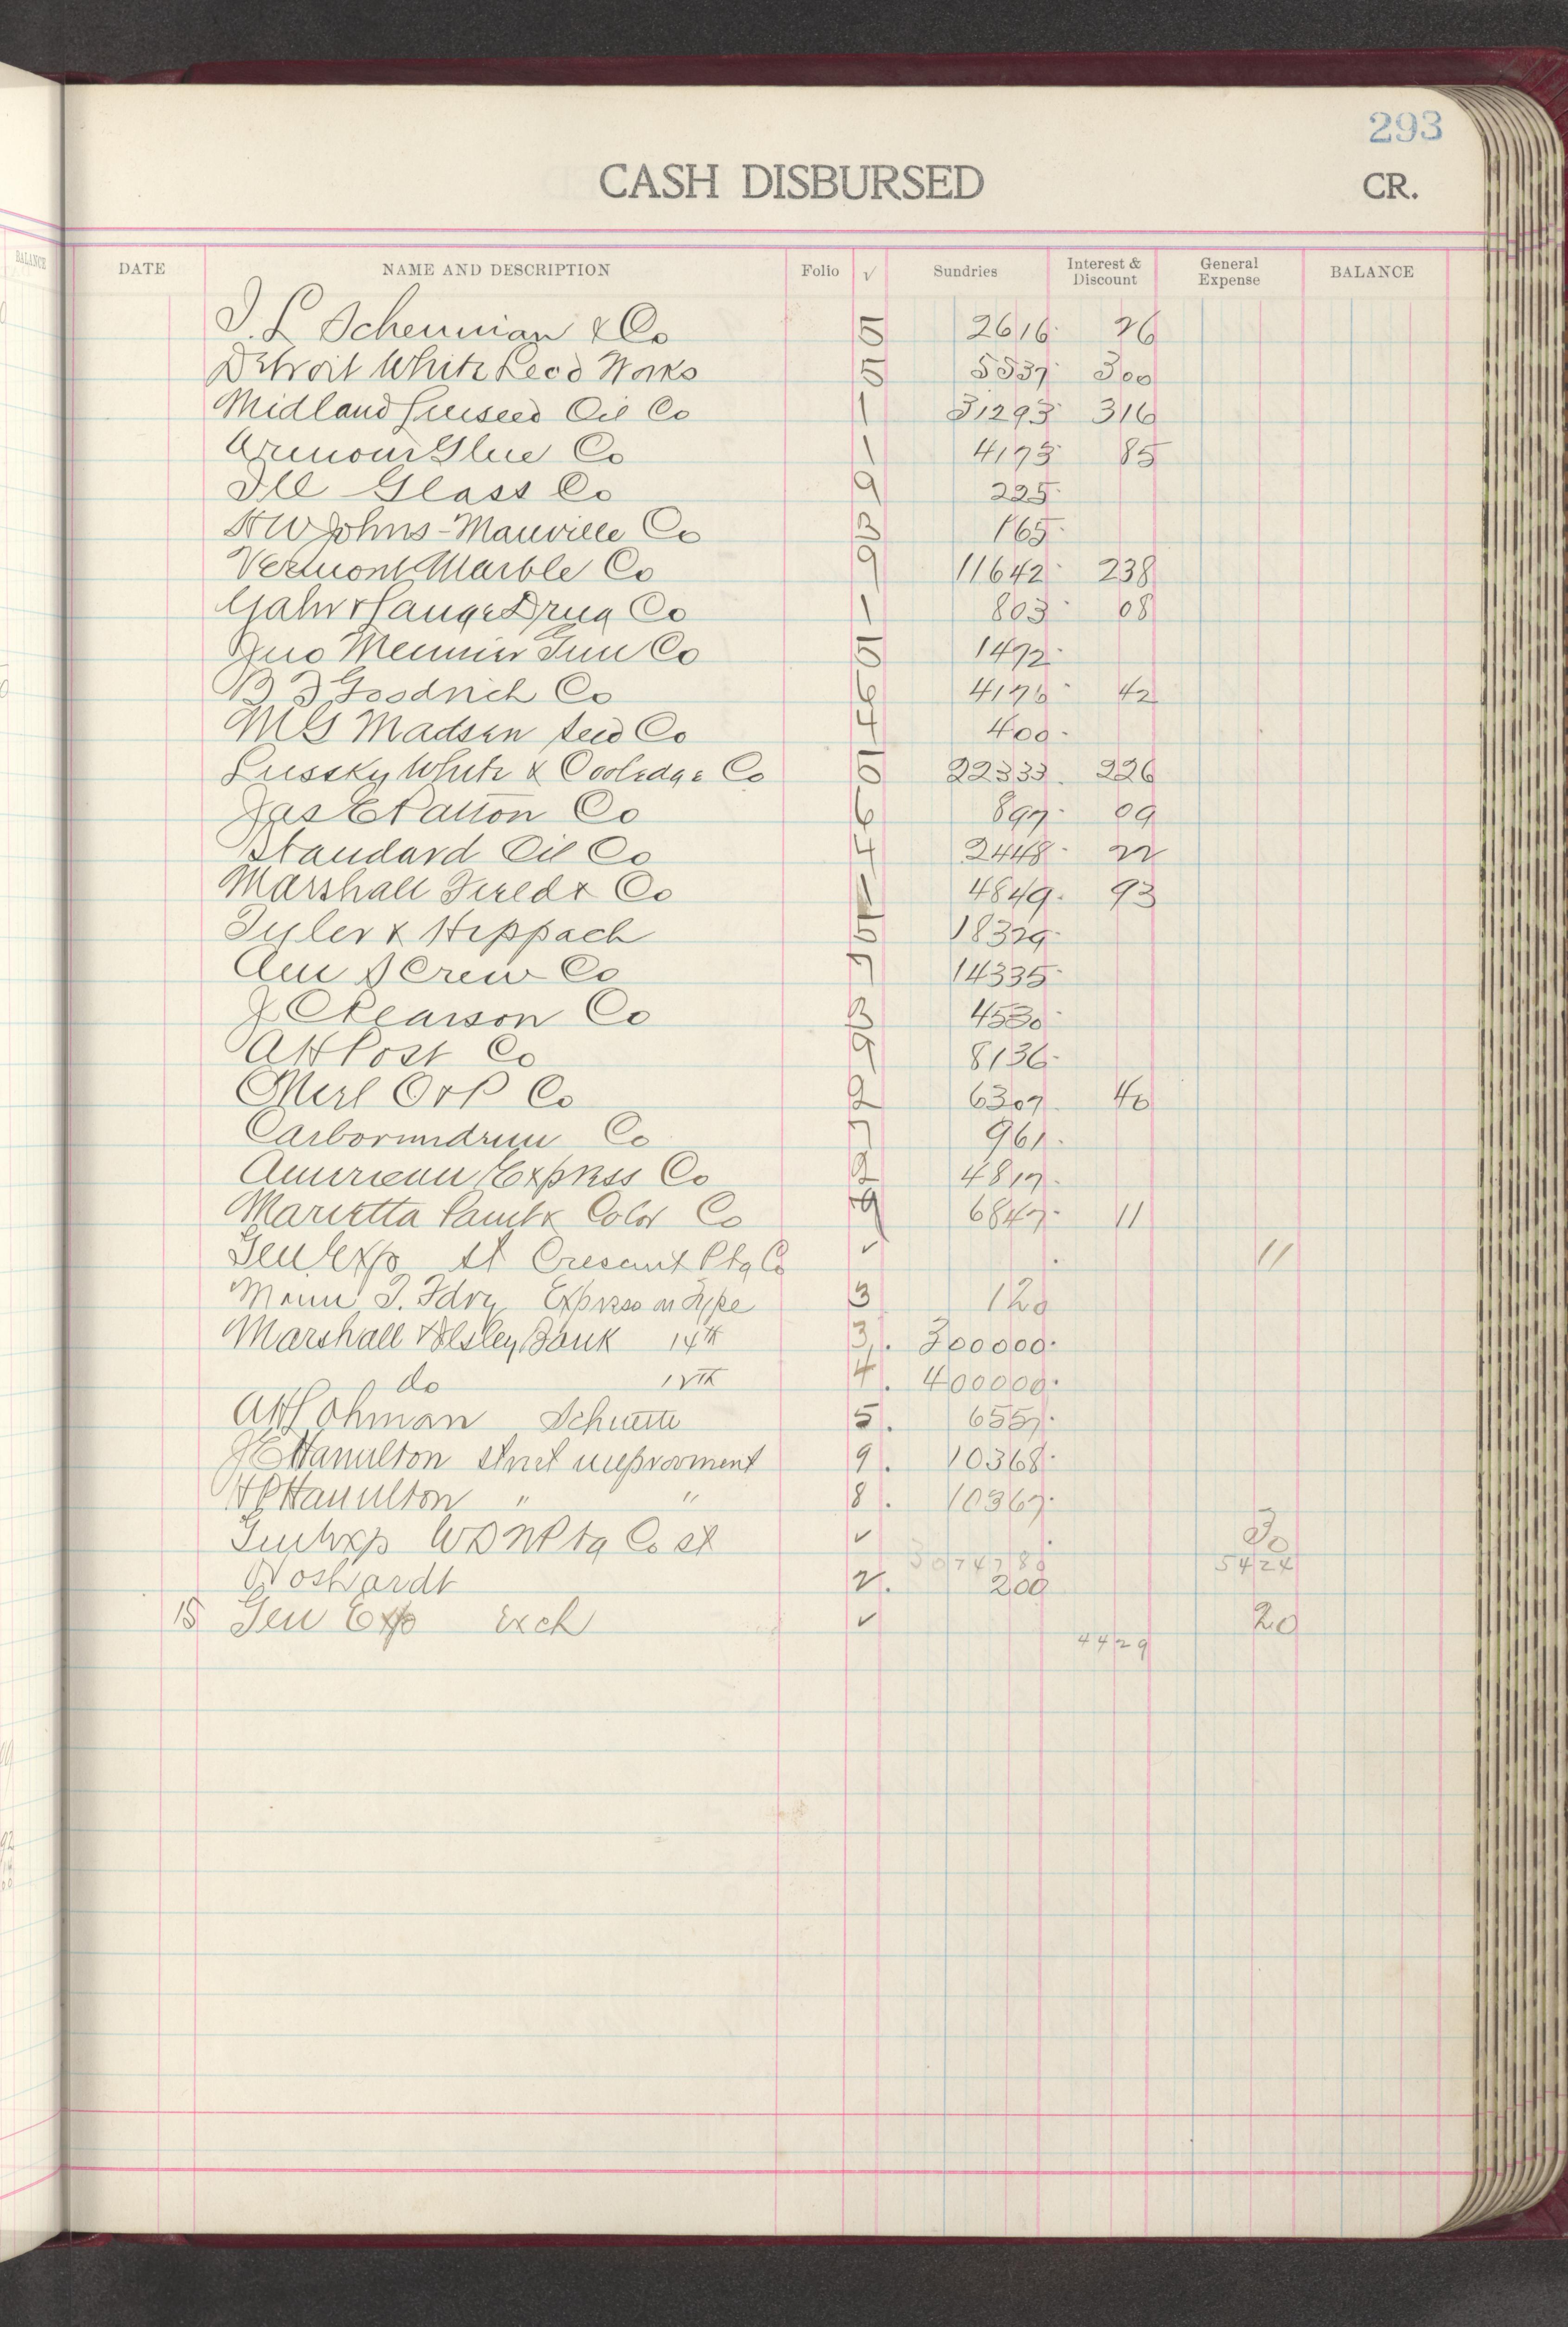 293
CASH DISBURSED CR.
DATE NAME AND DESCRIPTION Folio √ Sundries Interest & Discount General Expense BALANCE
J. L. Scheuman & Co 5 2616 26
Detroit White Lead Works 5 5537 300
Midland Linseed Oil Co 1 31293 316
Armour Glue Co 1 4173 85
Ill Glass Co 9 225
H W Johns-Manville Co 13 165
Vermont Marble Co 9 11642 238
Yahr & Lange Drug Co 1 803 08
Jno Meunier Gun Co 5 1492
B F Goodrich Co 6 4176 42
M G Madsen Seed Co 4 400
Lussky White & Coolidge Co 5 22333 226
Jas E Patton Co 6 897 09
Standard Oil Co 4 2448 22
Marshall Field & Co 1 4849 93
Tyler & Hippach 5 18329
Am Screw Co 7 14335
J C Pearson Co 13 4530
A H Post Co 9 8136
Merl O & P Co 2 6307 40
Carborundrum Co 7 961
American Express Co 2 4817
Marietta Paint & Color Co 9 6847 11
Gen Exp st Crescent Ptg Co √ 11
T. Fdry Express on Type 3 120
Marshall & Ilsley Bank 14th 3 300000
do 15th 4 400000
A H Lohman Schuette 5 6557
J E Hamilton street improvment 9 10368
H P Hamilton " " 8 10367
Gen Exp W D N Ptg Co st √ 30
3074780 5424
2 200
15 Gen Exp Exch √ 20
4429